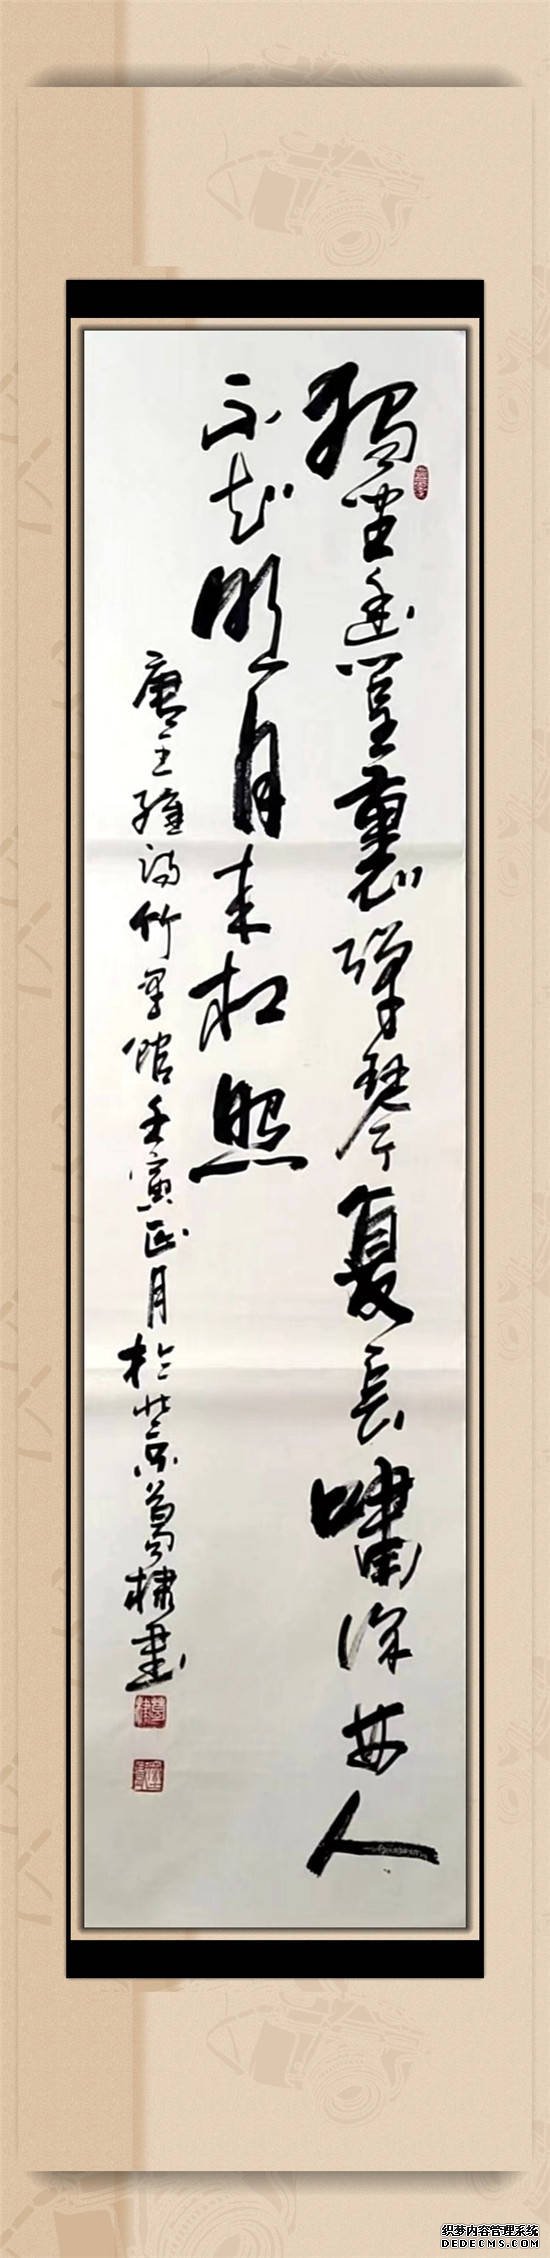 獨坐幽篁裏弹琴复長嘯深林人
不知明月来相照
唐王維诗竹里館壬寅正月於北京葛棣書
织梦内容管理系统
DEDECMS.COM